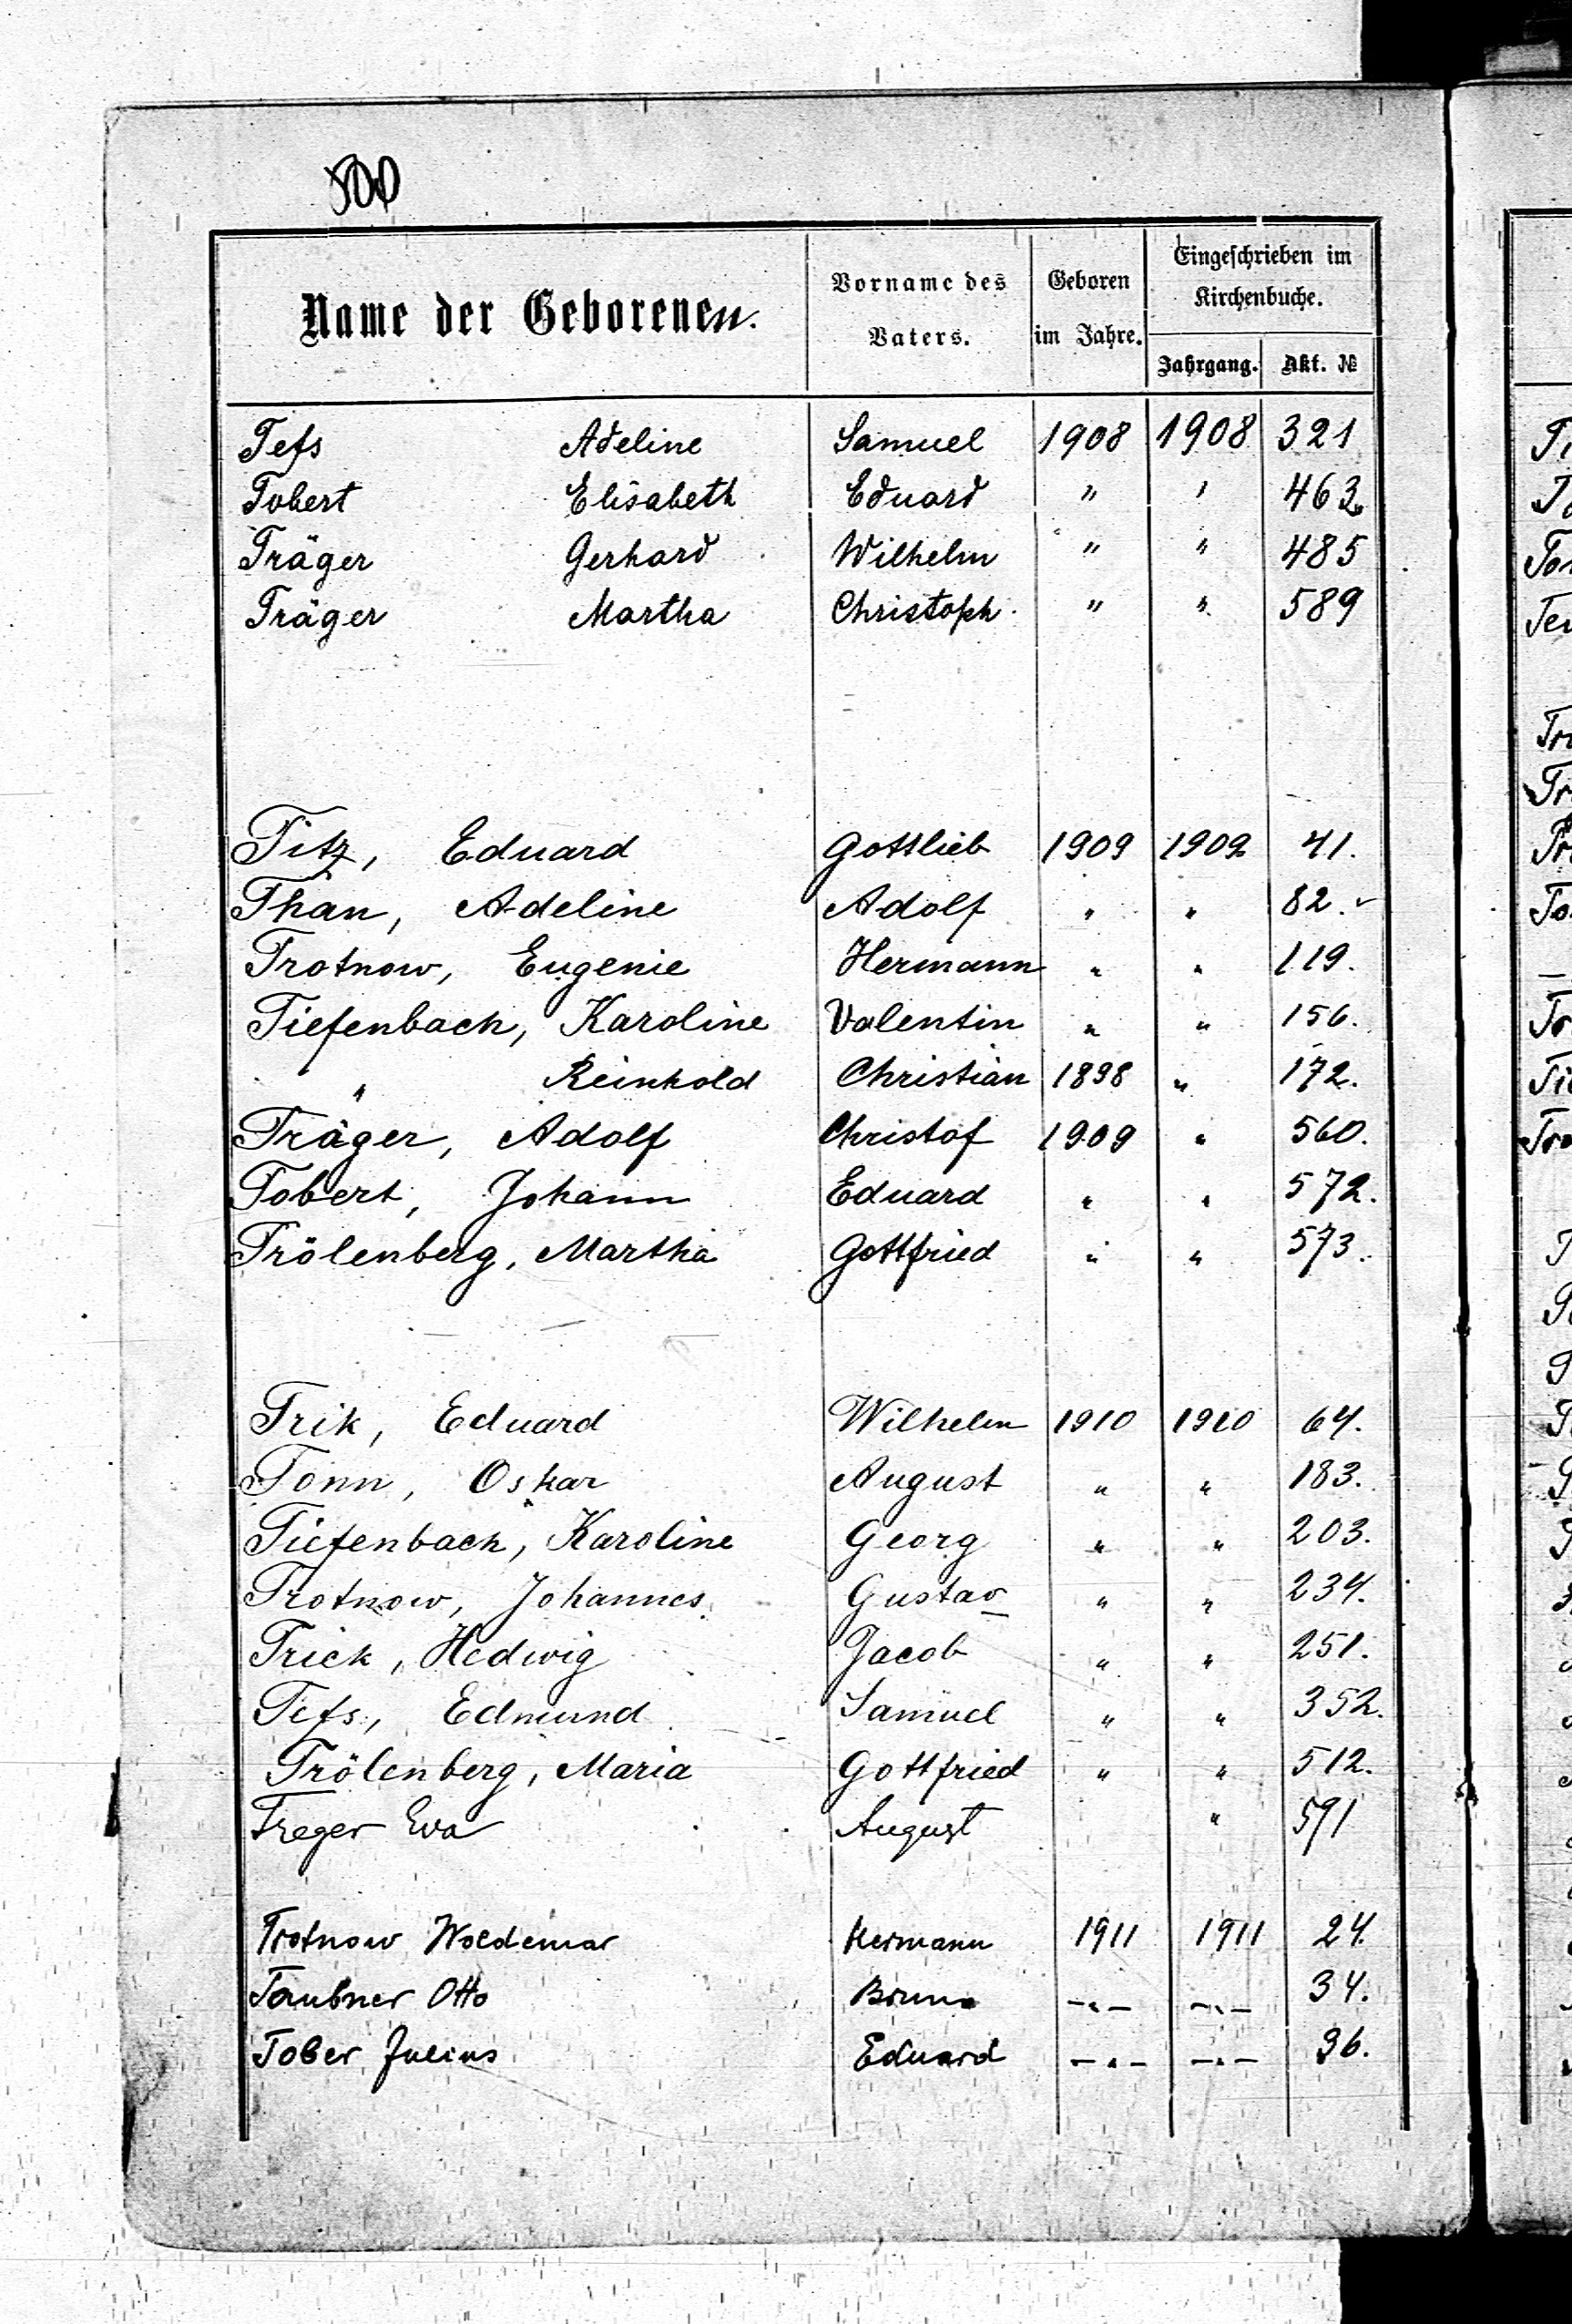 500
Name der Geborenen. Vorname des Vaters. Geboren im Jahre. Eingeschrieben im Kirchenbuche. Jahrgang. Akt. №
Tefs Adeline Samuel 1908 1908 321
Tobert Elisabeth Eduard " " 463
Träger Gerhard Wilhelm " " 485
Träger Martha Christoph " " 589
Titz, Eduard Gottlieb 1909 1909 41.
Than, Adeline Adolf " " 82.
Trotnow, Eugenie Hermann " " 119.
Tiefenbach, Karoline Valentin " " 156.
" Reinhold Christian 1898 " 172.
Träger, Adolf Christof 1909 " 560.
Tobert, Johann Eduard " " 572.
Trölenberg, Martha Gottfried " " 573.
Trik, Eduard Wilhelm 1910 1910 64.
Tonn, Oskar August " " 183.
Tiefenbach, Karoline Georg " " 203.
Trotnow, Johannes Gustav " " 234.
Trick, Hedwig Jacob " " 251.
Tefs, Edmund Samuel " " 352.
Trölenberg, Maria Gottfried " " 512.
Treger Eva August " 591
Trotnow Woldemar Hermann 1911 1911 24.
Taubner Otto Bruno -"- -"- 34.
Tober Julius Eduard -"- -"- 36.